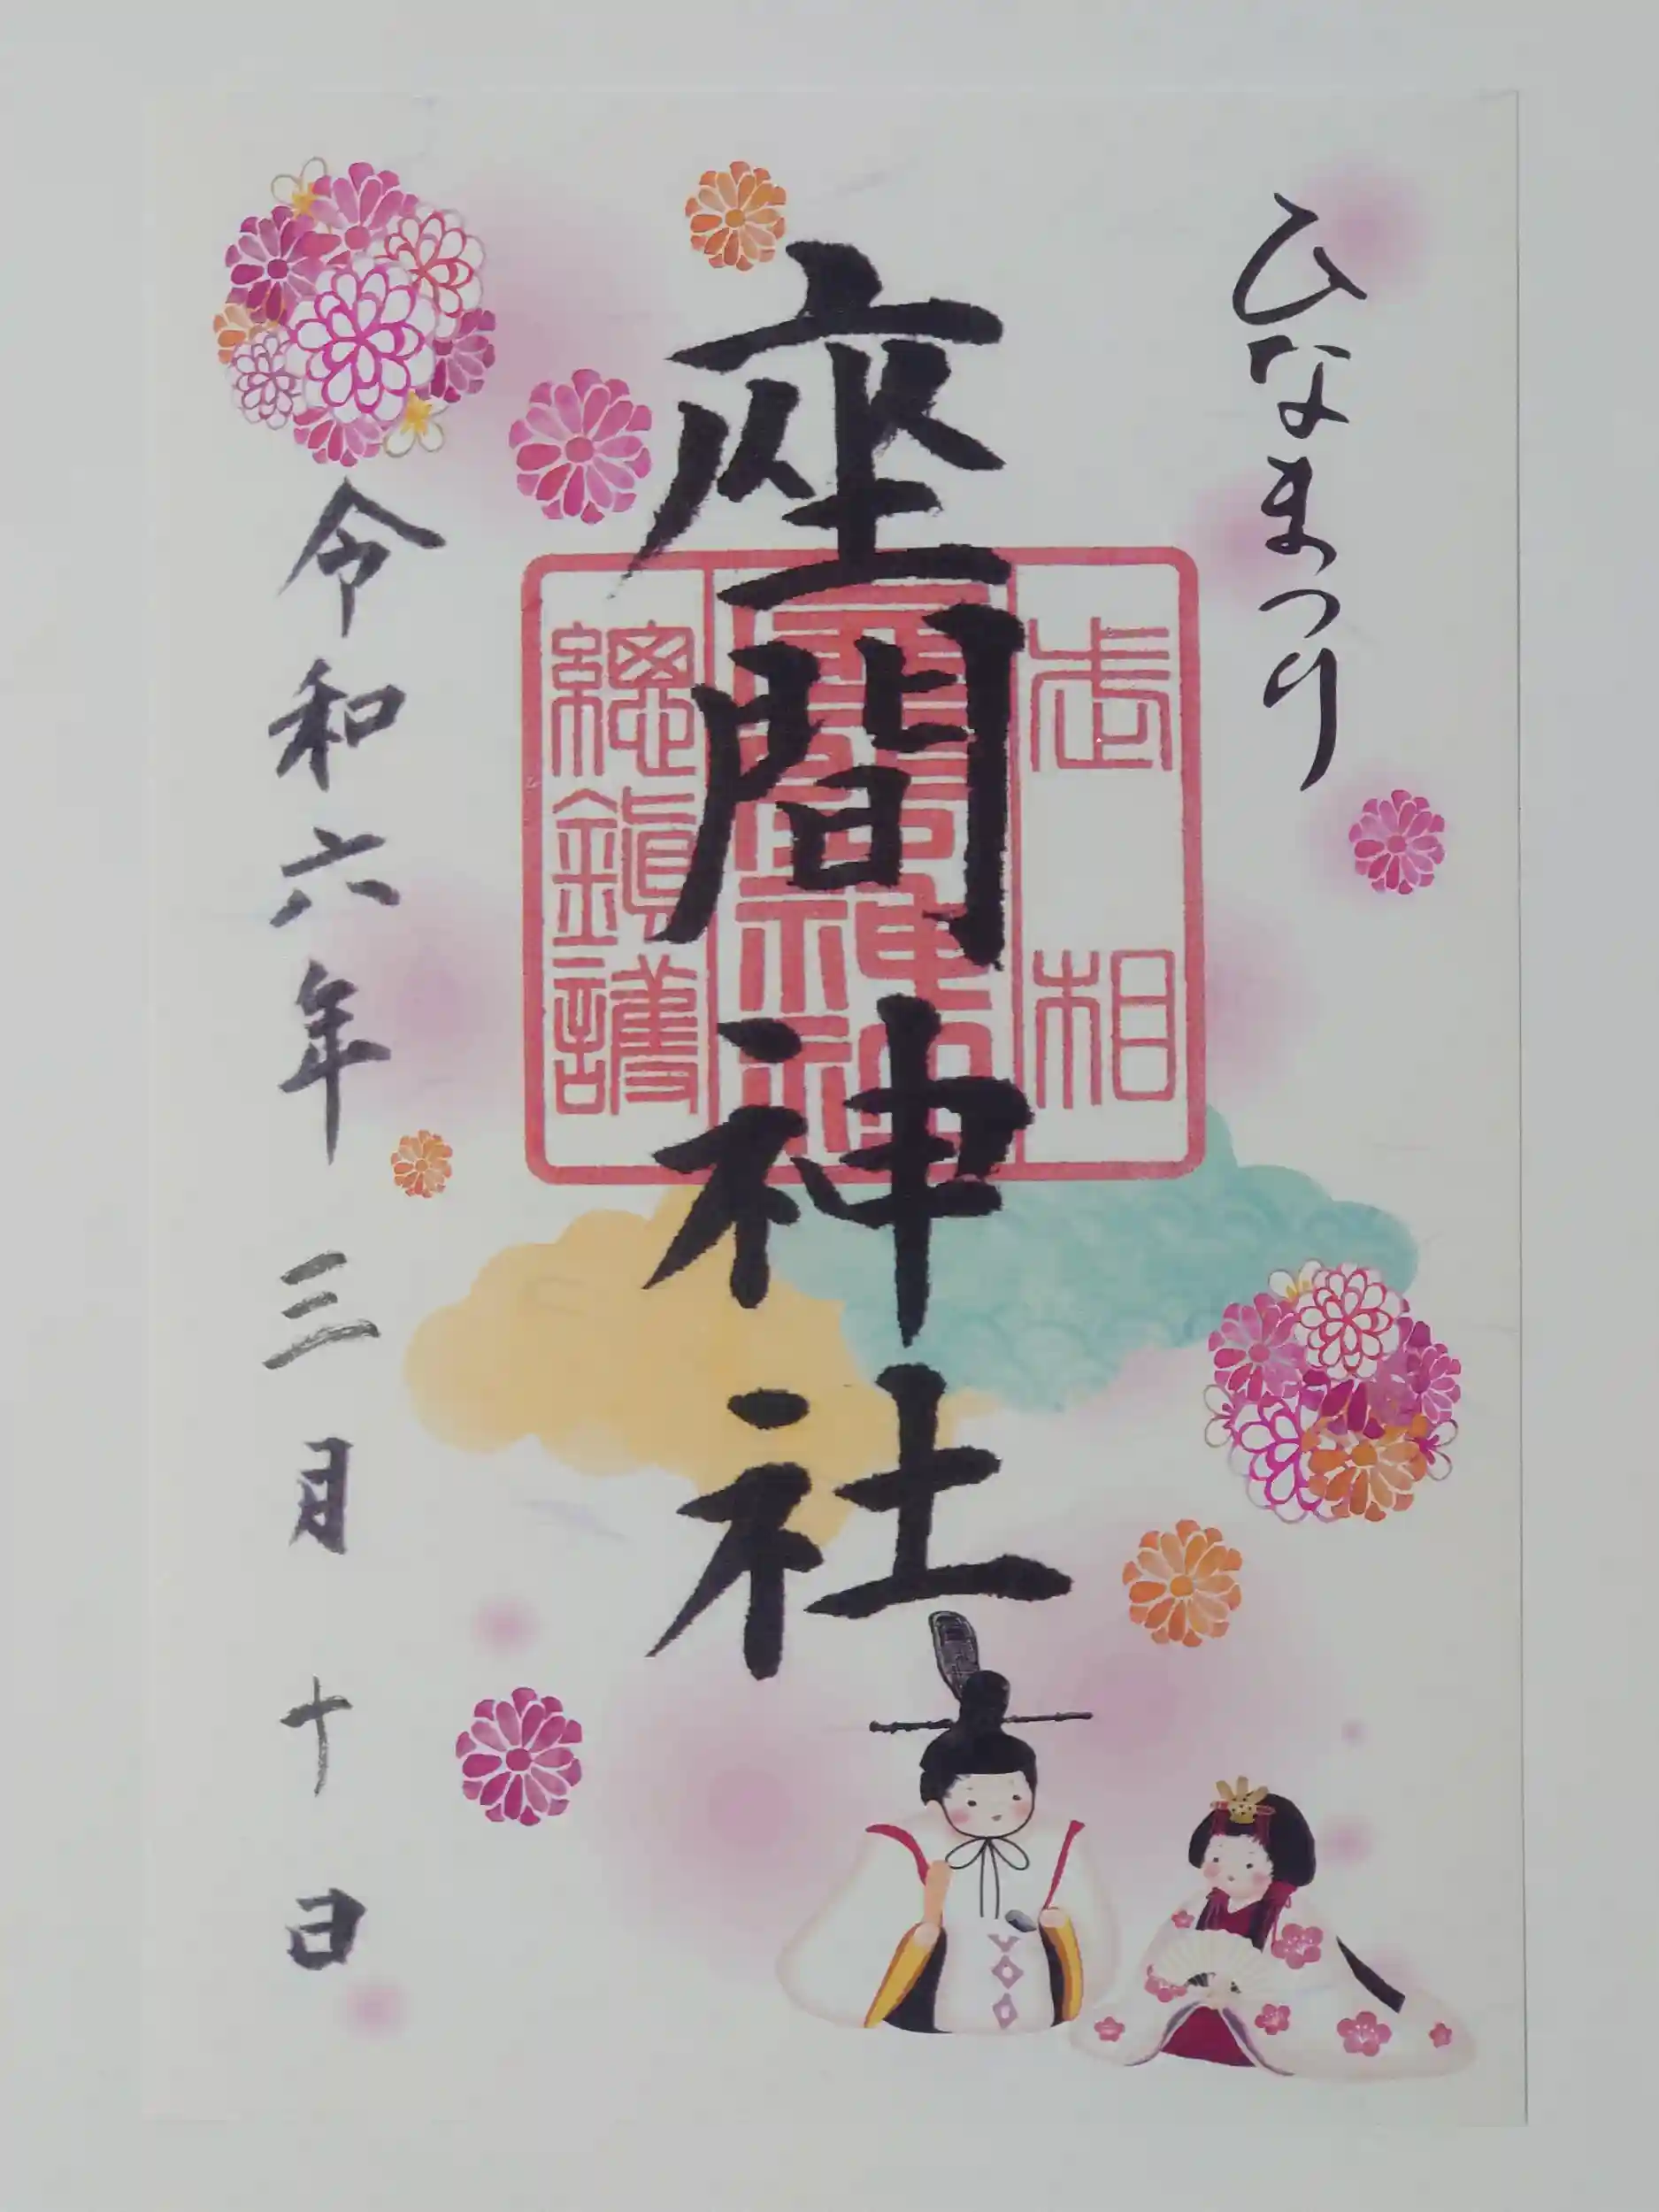 ひなまつり
座間神社
相武
座間神社
總鎮護
令和六年三月十日